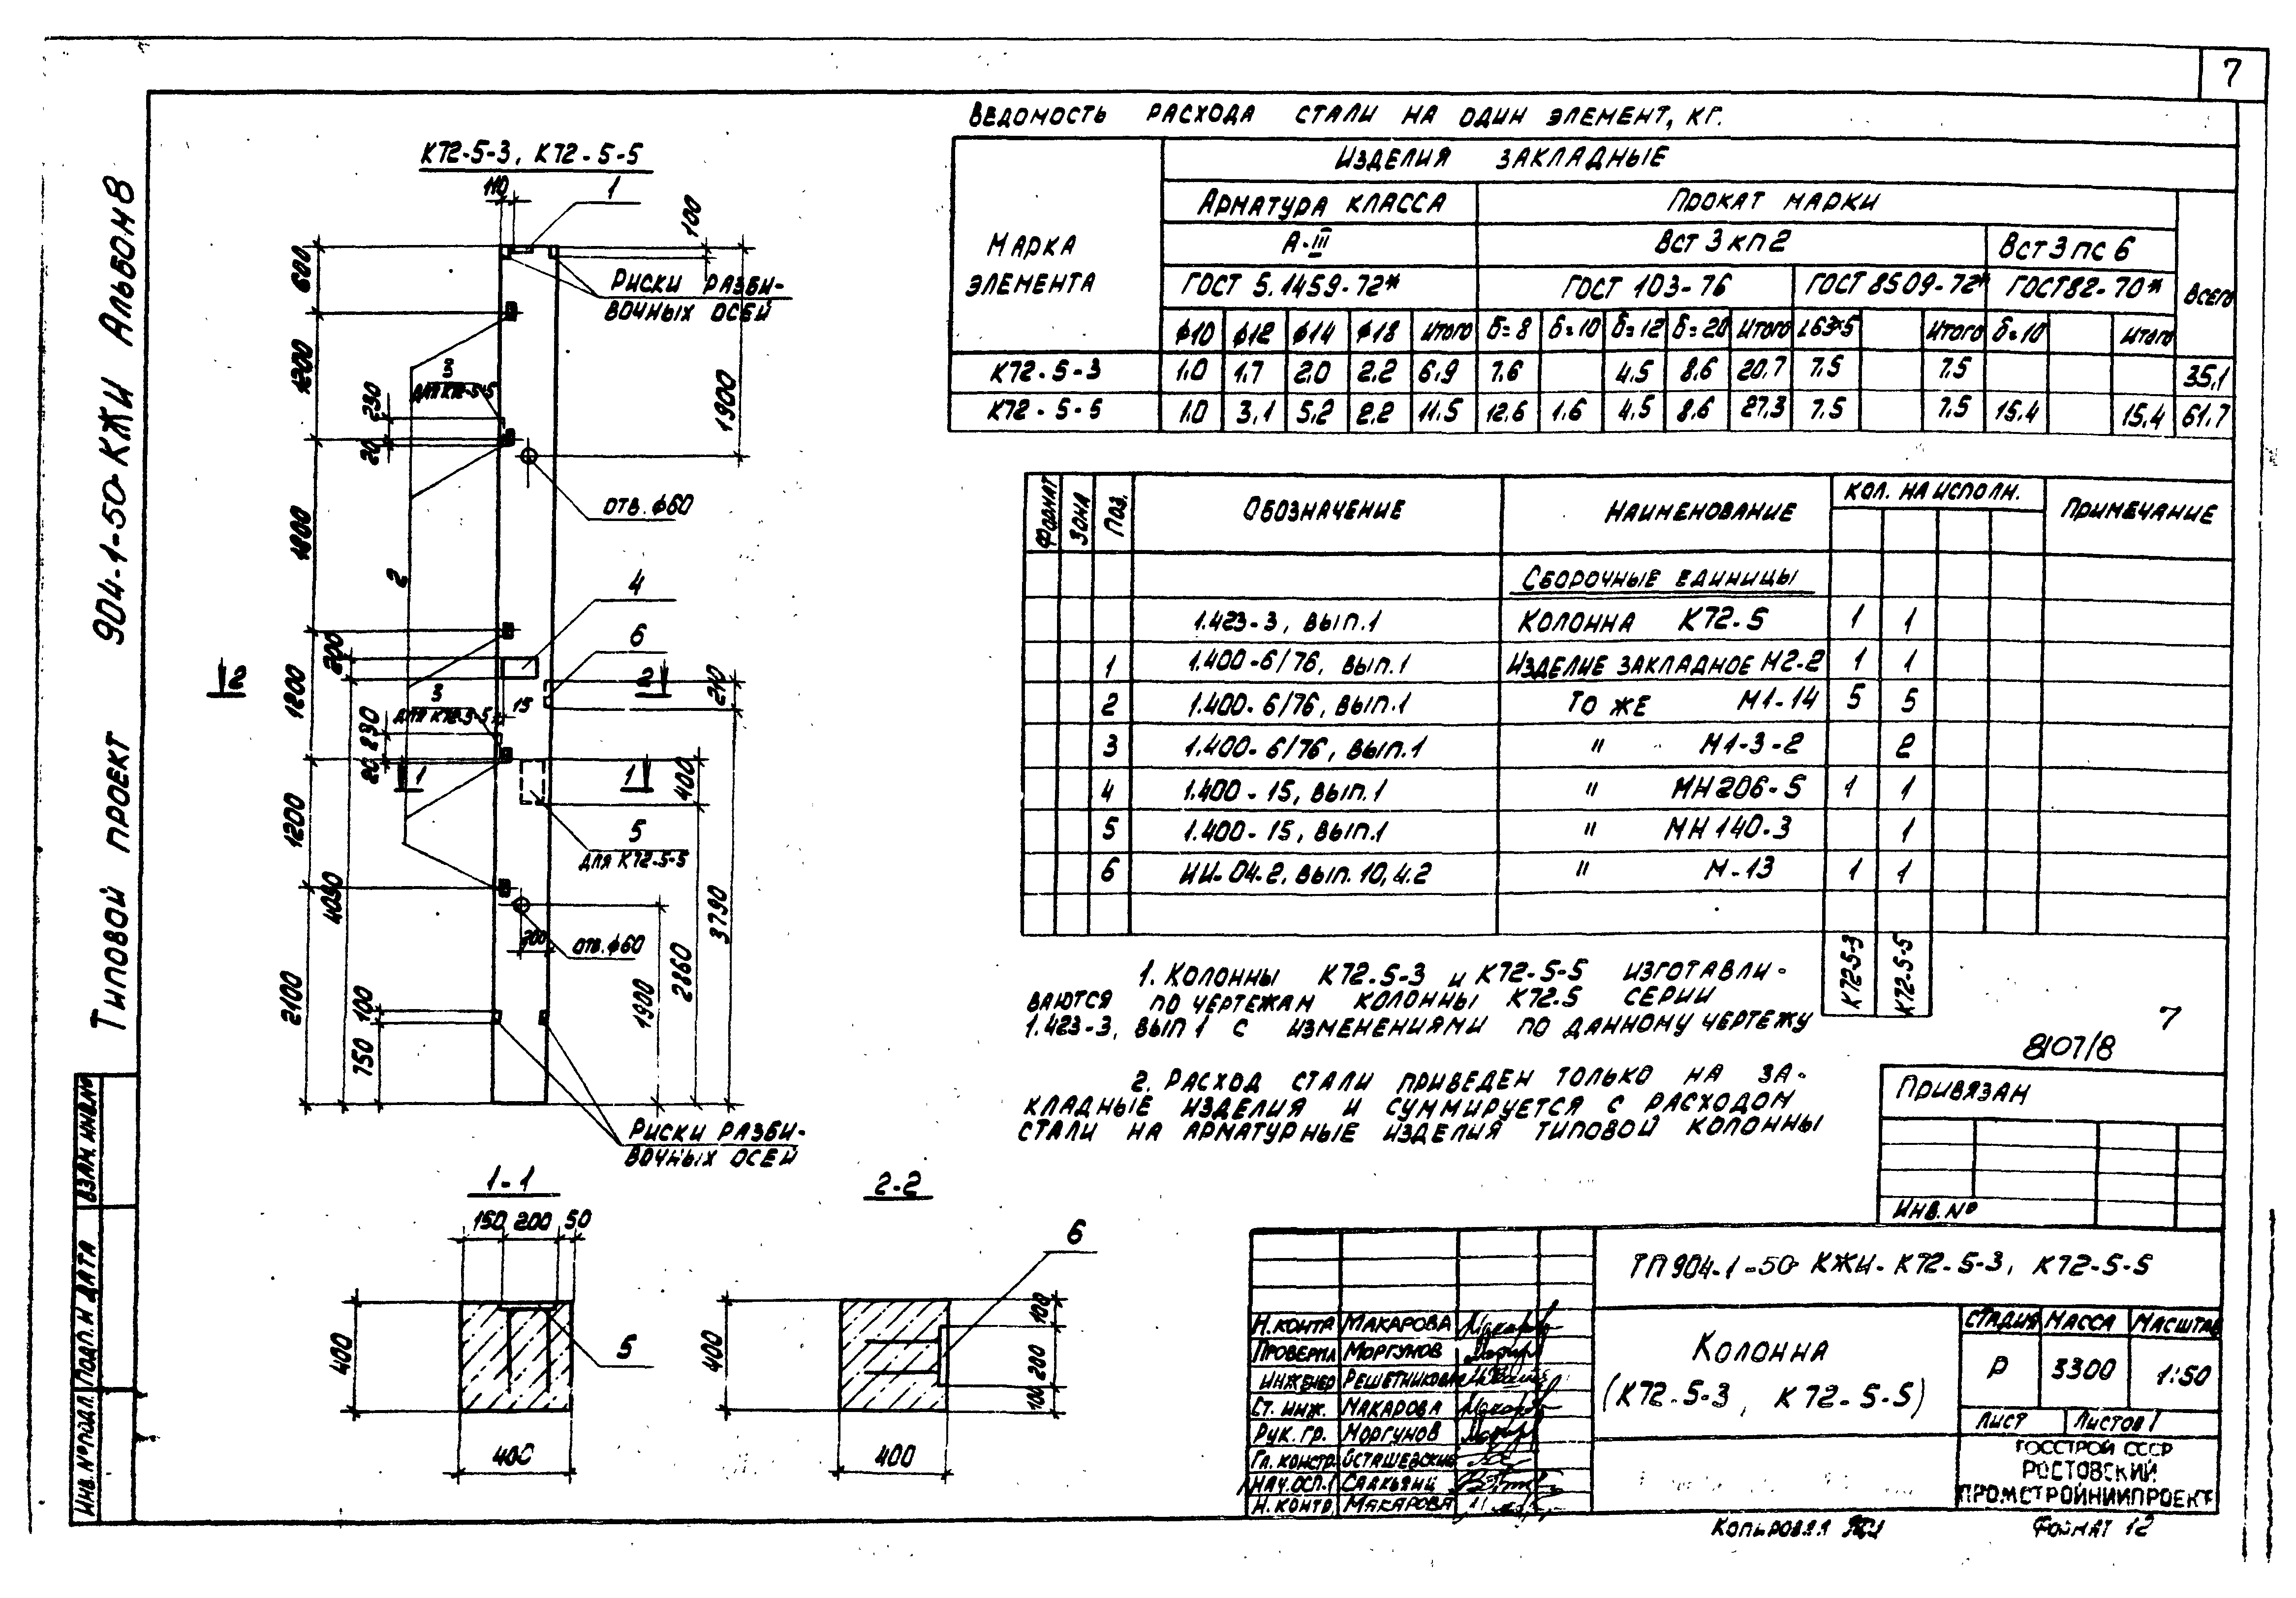 7
Типовой проект 904-1-50-КЖИ Альбом 8
К72-5-3, К72-5-5
110
1
100
600
Риски разби-
вочных осей
1200
3
для К72-5-5
230
20
1900
отв. ф60
1800
2
4
6
200
2
2
210
1200
3
для К72-5-5
15
230
20
1
1
400
5
для К72-5-5
1200
4090
3790
2860
200
отв. ф60
2100
1900
100
750
Риски разби-
вочных осей
1-1
150 200 50
400
5
400
2-2
6
400
100
200
100
400
Ведомость расхода стали на один элемент, кг.
Марка элемента
Изделия закладные
Арматура класса
Прокат марки
Всего
А-III
Вст 3 кп 2
Вст 3 пс 6
ГОСТ 5.1459-72*
ГОСТ 103-76
ГОСТ 8509-72*
ГОСТ 82-70*
ф10 ф12 ф14 ф18 Итого δ=8 δ=10 δ=12 δ=20 Итого L63×5 Итого δ=10 Итого
К72-5-3 1.0 1.7 2.0 2.2 6.9 7.6 4.5 8.6 20.7 7.5 7.5 35.1
К72-5-5 1.0 3.1 5.2 2.2 11.5 12.6 1.6 4.5 8.6 27.3 7.5 7.5 15.4 15.4 61.7
Формат Зона Поз. Обозначение Наименование Кол. на исполн. Примечание
Сборочные единицы
1.423-3, вып.1 Колонна К72-5 1 1
1 1.400-6/76, вып.1 Изделие закладное М2-2 1 1
2 1.400-6/76, вып.1 То же М1-14 5 5
3 1.400-6/76, вып.1 " М1-3-2 2
4 1.400-15, вып.1 " МН206-5 1 1
5 1.400-15, вып.1 " МН140-3 1
6 ИИ-04-2, вып. 10, ч.2 " М-13 1 1
К72-5-3
К72-5-5
1. Колонны К72-5-3 и К72-5-5 изготавли-
ваются по чертежам колонны К72-5 серии
1.423-3, вып 1 с изменениями по данному чертежу
2. Расход стали приведен только на за-
кладные изделия и суммируется с расходом
стали на арматурные изделия типовой колонны
7
8107/8
Привязан
Инв. №
ТП 904-1-50-КЖИ-К72-5-3, К72-5-5
Н.контр Макарова
Проверил Моргунов
Инженер Решетникова
Ст. инж. Макарова
Рук. гр. Моргунов
Гл. констр. Осташевский
Нач. осп.1 Саакьянц
Н. контр. Макарова
Колонна
(К72-5-3, К72-5-5)
Стадия Масса Масштаб
Р 3300 1:50
Лист Листов 1
Госстрой СССР
Ростовский
Промстройниипроект
Копировал
Формат 12
Инв. № подл. Подп. и дата Взам. инв. №